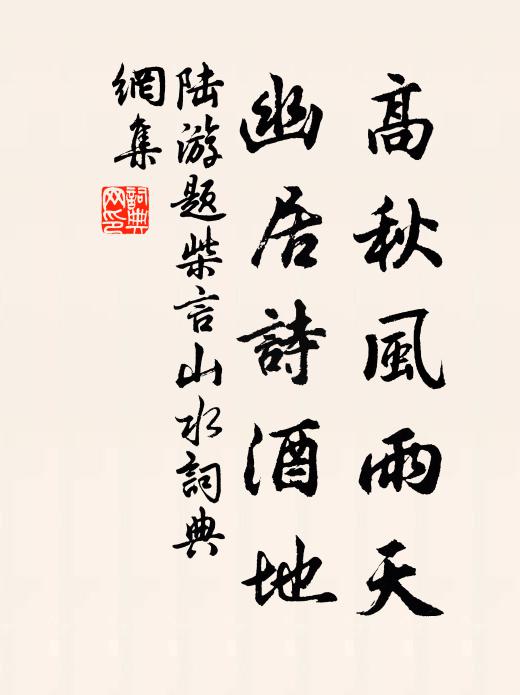 高秋風雨天
幽居詩酒地
陆游题柴言山水詞典
網集
詞典网印